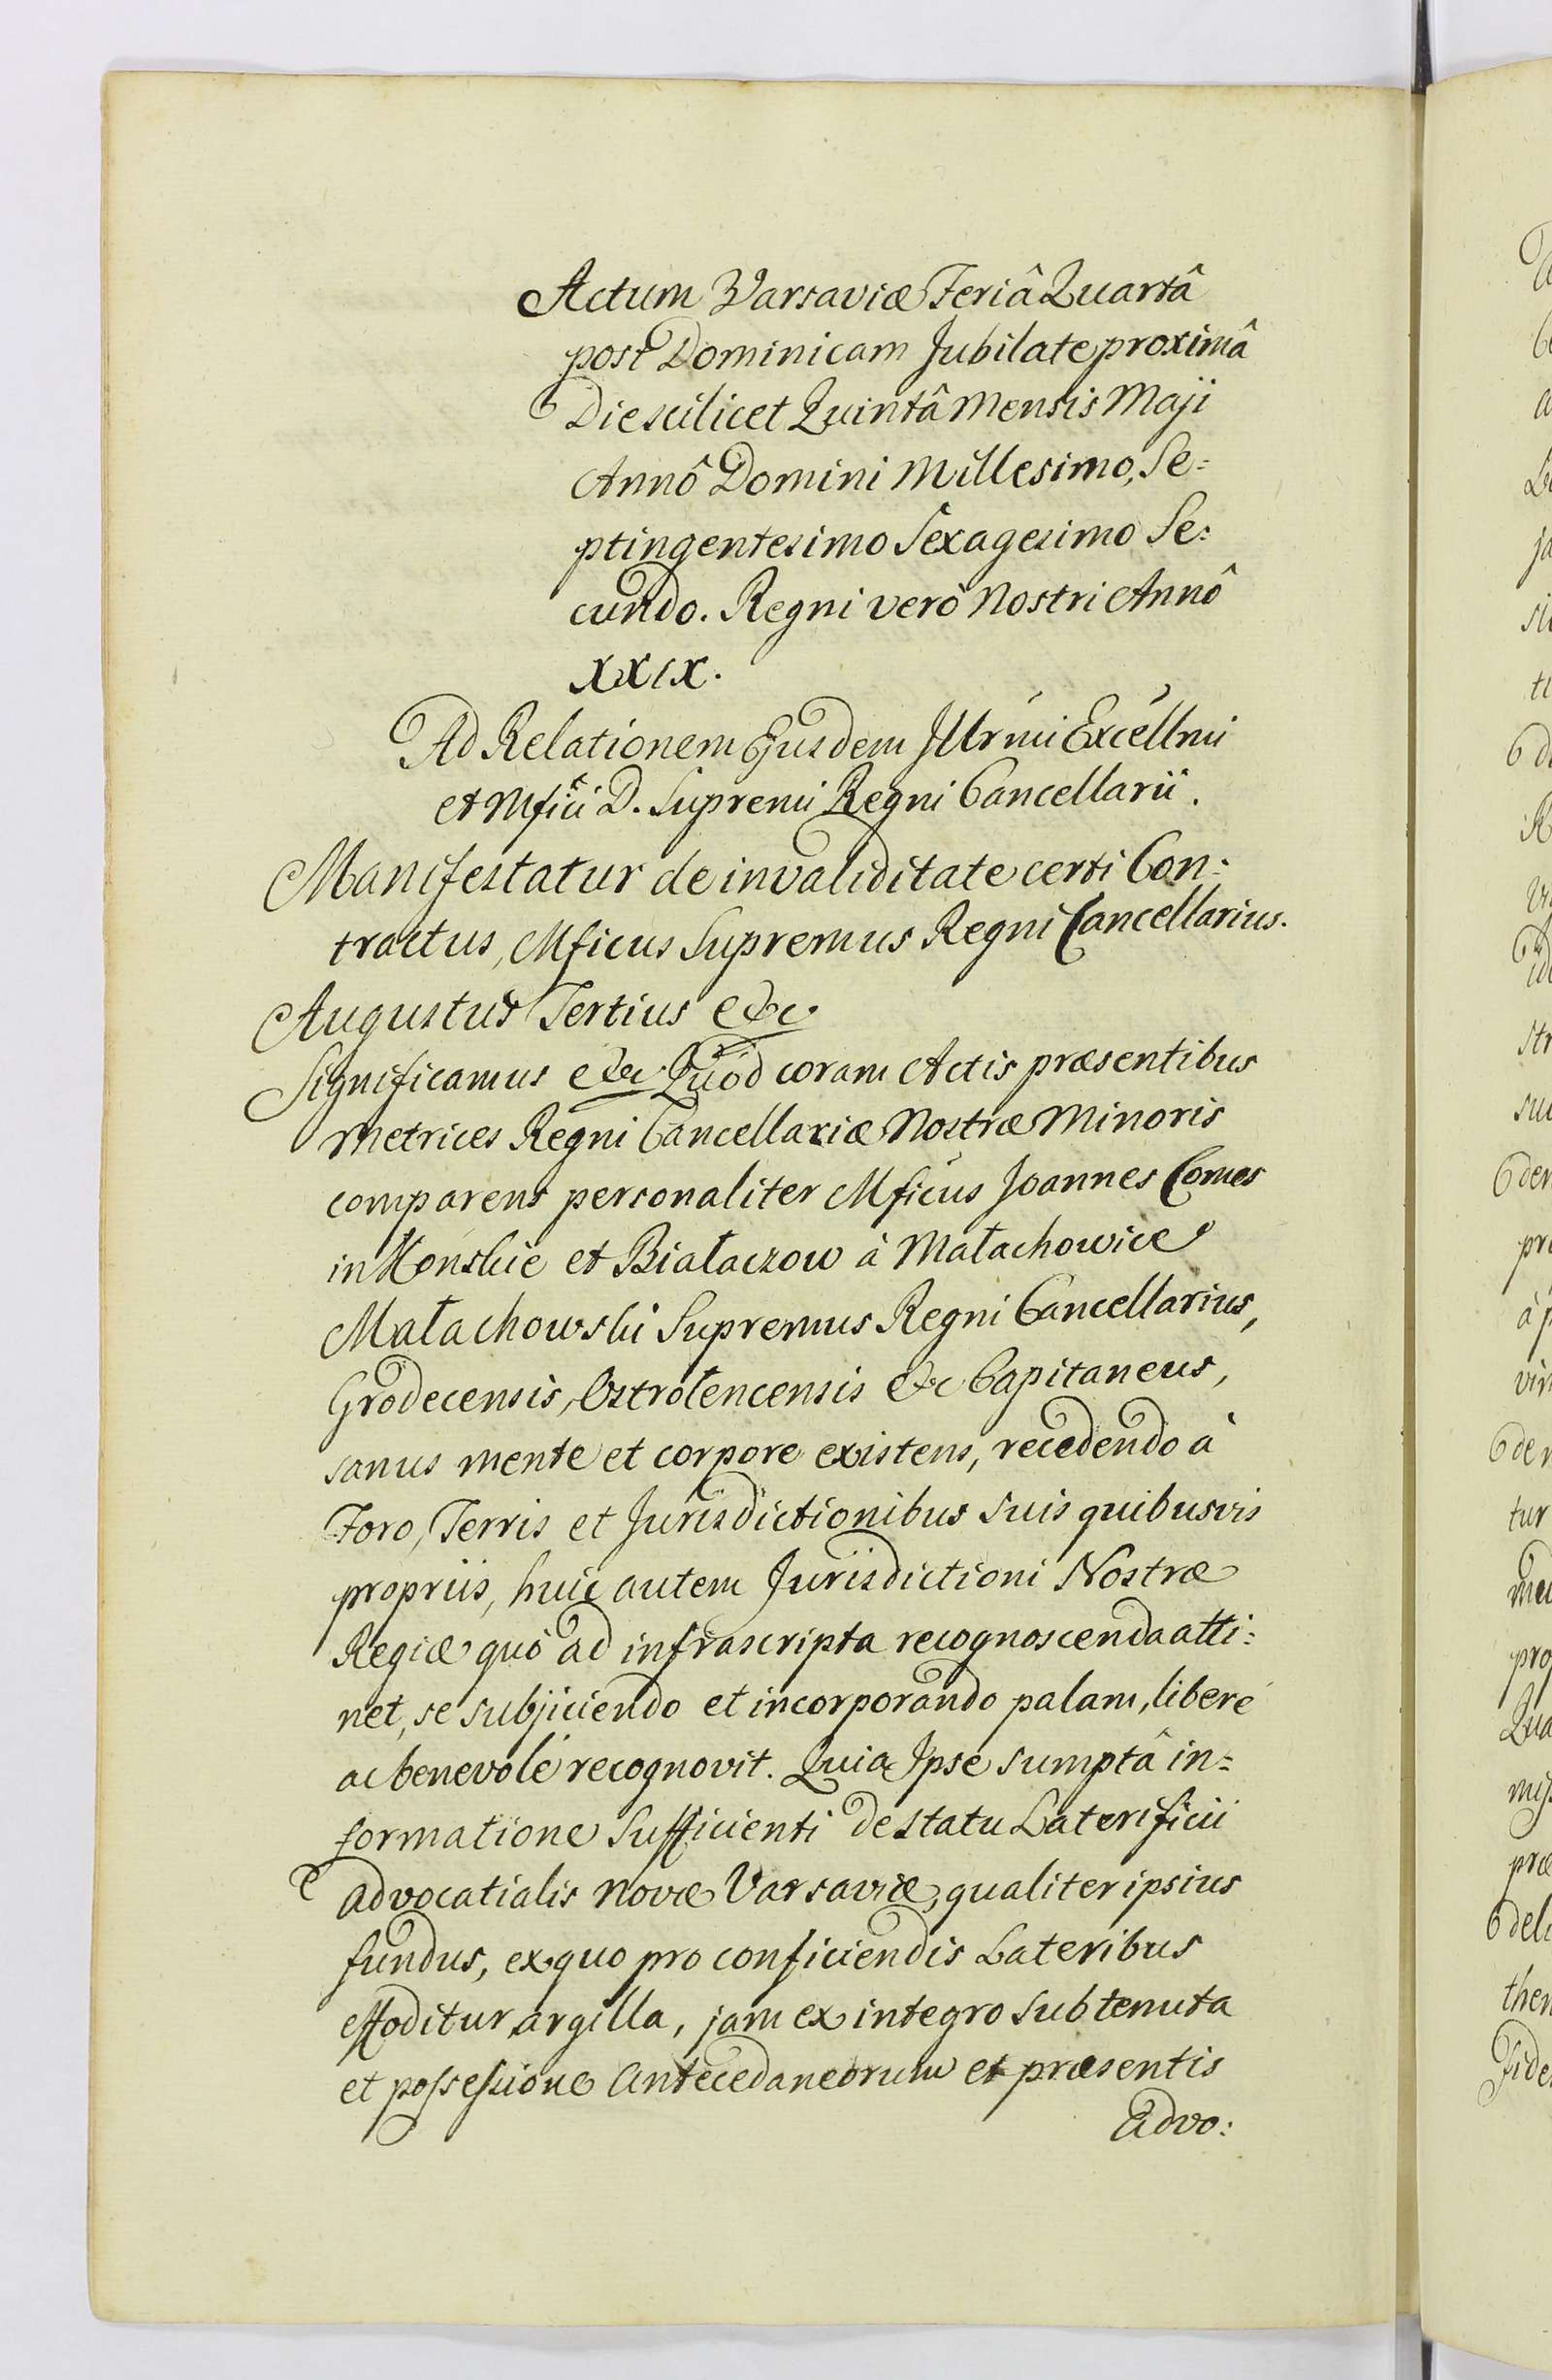 Actum Varsaviæ Feriâ Quartâ
post Dominicam Jubilate proximâ
Die scilicet Quintâ Mensis Maji
Annô Domini Millesimo, Se=
ptingentesimo Sexagesimo Se=
cundo. Regni verò Nostri Annô
XXIX.
Ad Relationem Ejusdem Illrmi Excellmi
et Mfici D. Supremi Regni Cancellarii.
Manifestatur de invaliditate certi Con=
tractus, Mficus Supremus Regni Cancellarius.
Augustus Tertius etc
Significamus etc Quòd coram Actis præsentibus
Metrices Regni Cancellariæ Nostræ Minoris
comparens personaliter Mficus Joannes Comes
in Konskie et Białaczow à Małachowice
Małachowski Supremus Regni Cancellarius,
Grodecensis, Ostrołencensis &c Capitaneus,
sanus mente et corpore existens, recedendo à
Foro, Terris et Jurisdictionibus suis quibusvis
propriis, huic autem Jurisdictioni Nostræ
Regiæ quò ad infrascripta recognoscenda atti=
net, se subjiciendo et incorporando palam, liberè
ac benevolè recognovit. Quia Ipse sumptâ in=
formatione sufficienti de statu Laterificii
Advocatialis Novæ Varsaviæ, qualiter ipsius
fundus, ex quo pro conficiendis Lateribus
effoditur argilla, jam ex integro sub tenuta
et possessione Antecedaneorum et præsentis
Advo: